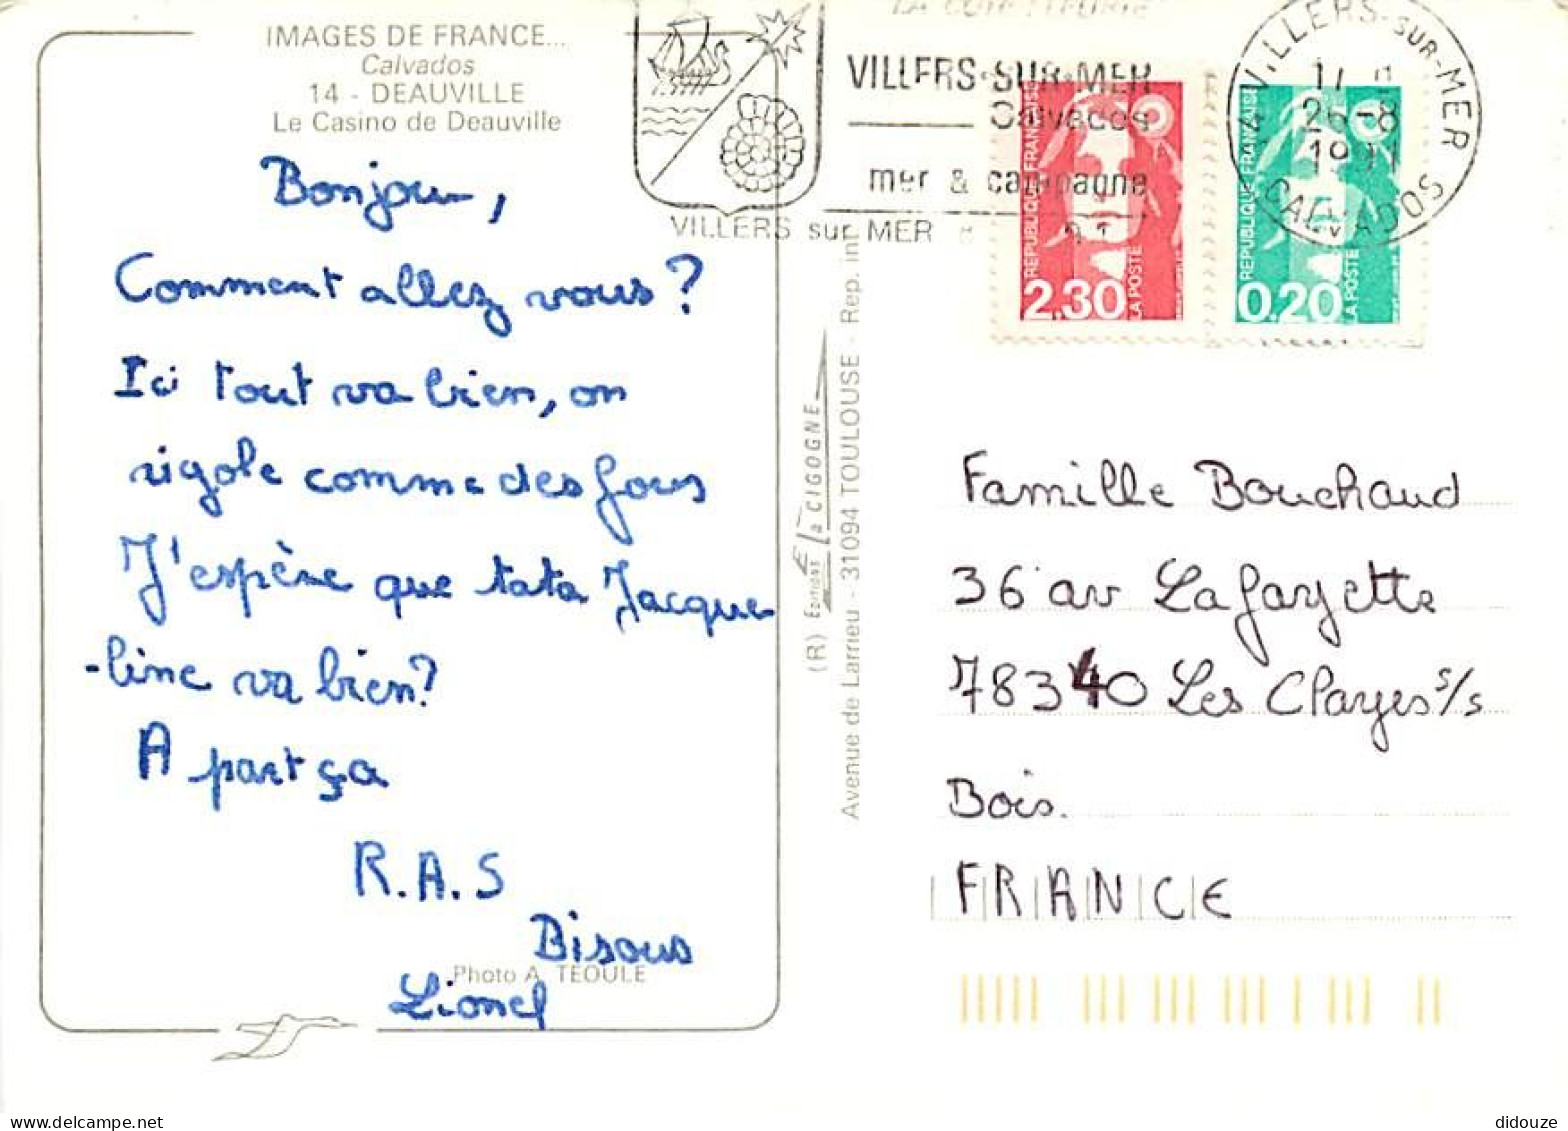 IMAGES DE FRANCE...
Calvados
14 - DEAUVILLE
Le Casino de Deauville
Bonjour,
Comment allez vous ?
Ici tout va bien, on
rigole comme des fous
J'espère que tata Jacque-
-line va bien ?
A part ça
R.A.S
Bisous
Lionel
Photo A. TEOULE
LA COTE FLEURIE
VILLERS-SUR-MER
Calvados
mer & campagne
VILLERS sur MER
VILLERS-SUR-MER
17 H
26-8
1991
CALVADOS
REPUBLIQUE FRANÇAISE
2,30
LA POSTE
REPUBLIQUE FRANÇAISE
0,20
LA POSTE
(R) EDITIONS la CIGOGNE
Avenue de Larrieu - 31094 TOULOUSE - Rep. int
Famille Bouchaud
36 av Lafayette
78340 Les Clayes s/s
Bois.
FRANCE
didouze